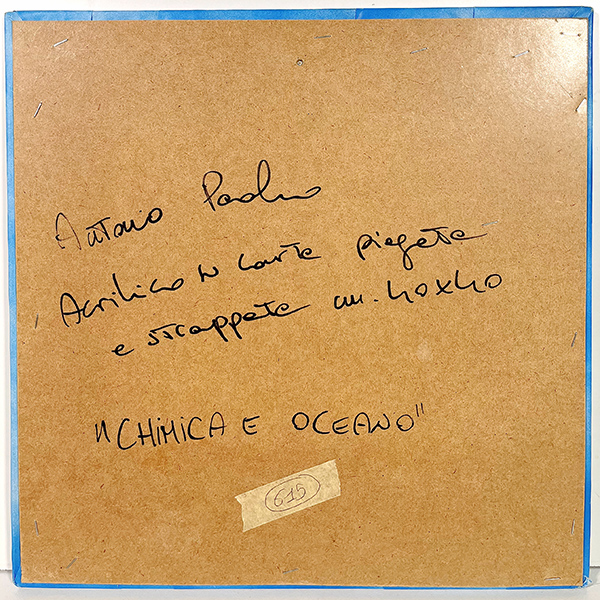 Antonio
Acrilico su carte piegate
e strappate cm. 40x40
"CHIMICA E OCEANO"
615